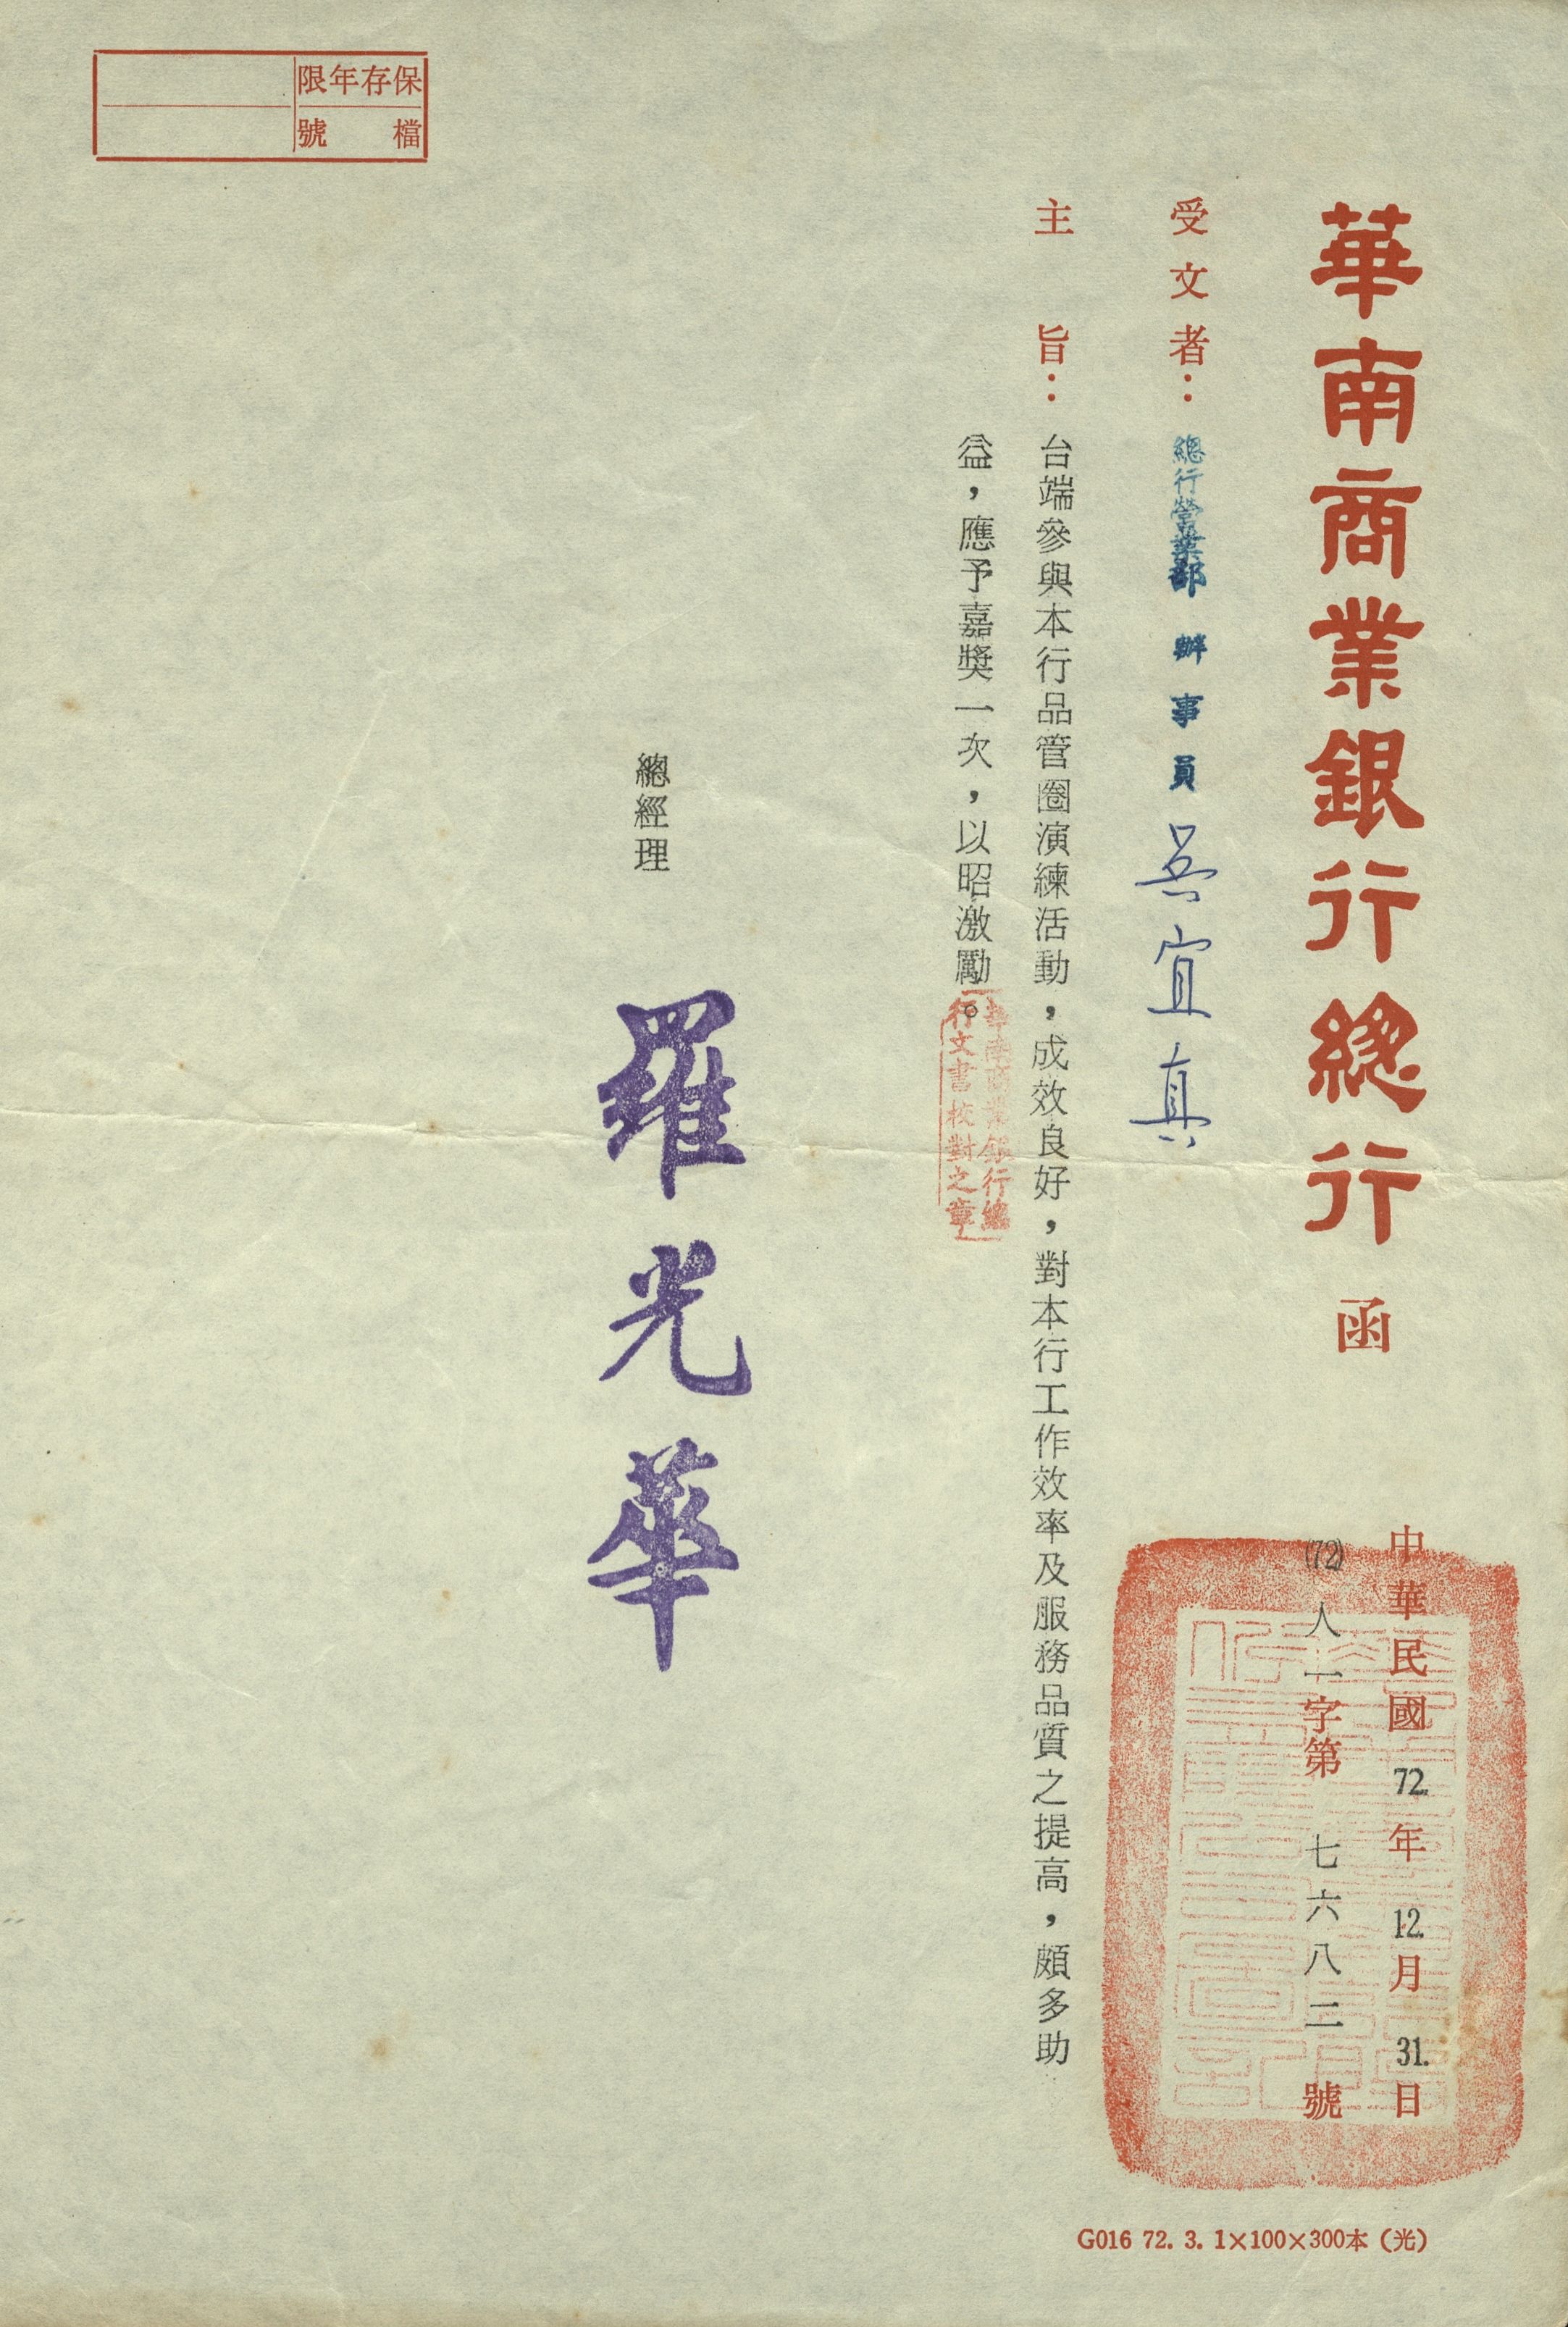 保存年限
檔號
華南商業銀行總行 函
中華民國 72. 年 12. 月 31. 日
(72) 人一字第 七六八二 號
受文者：總行營業部 辦事員 吳宜真
主旨：台端參與本行品管圈演練活動，成效良好，對本行工作效率及服務品質之提高，頗多助
益，應予嘉獎一次，以昭激勵。
華南商業銀行總
行文書校對之章
總經理 羅光華
G016 72. 3. 1×100×300本（光）